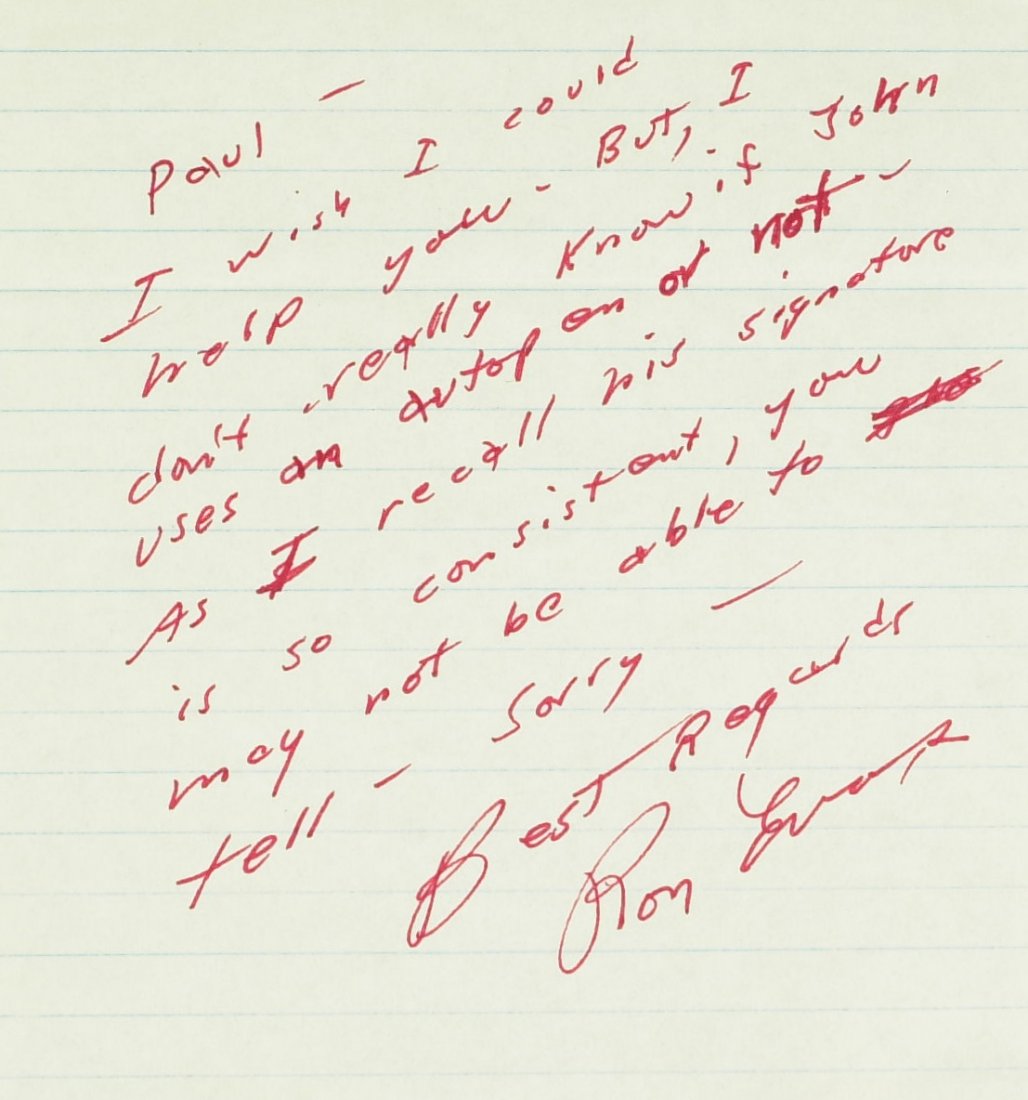 Paul —
I wish I could
help you - But, I
don't really know if John
uses an autopen or not -
As I recall his signature
is so consistent, you
may not be able to
tell - Sorry —
Best Regards
Ron Evans